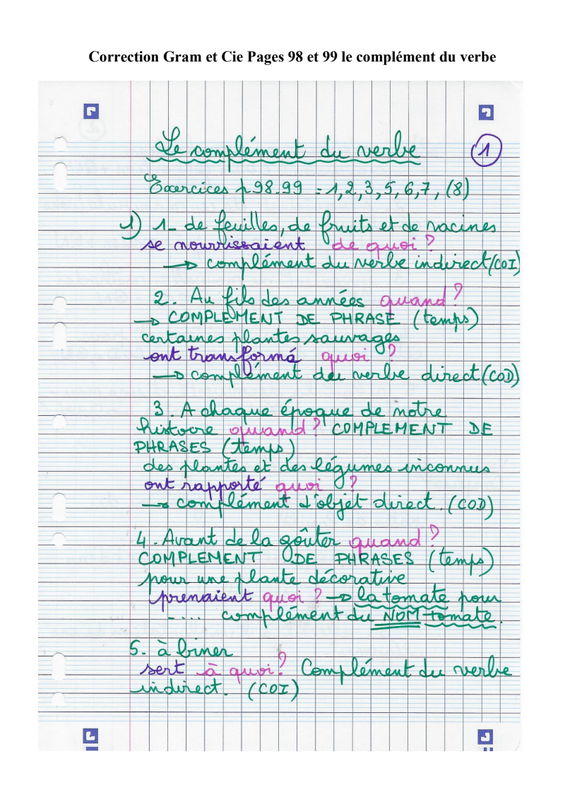 Correction Gram et Cie Pages 98 et 99 le complément du verbe
Le complément du verbe
1
Exercices p.98-99 = 1,2,3,5,6,7, (8)
1) 1_ de feuilles, de fruits et de racines
se nourrissaient de quoi ?
→ complément du verbe indirect (COI)
2. Au fil des années quand ?
→ COMPLEMENT DE PHRASE (temps)
certaines plantes sauvages
ont transformé quoi ?
→ complément du verbe direct (COD)
3. A chaque époque de notre
histoire quand ? COMPLEMENT DE
PHRASES (temps)
des plantes et des légumes inconnus
ont rapporté quoi ?
→ complément d'objet direct. (COD)
4. Avant de la goûter quand ?
COMPLEMENT DE PHRASES (temps)
pour une plante décorative
prenaient quoi ? → la tomate pour
.... complément du NOM tomate.
5. à biner
sert à quoi ? Complément du verbe
indirect. (COI)